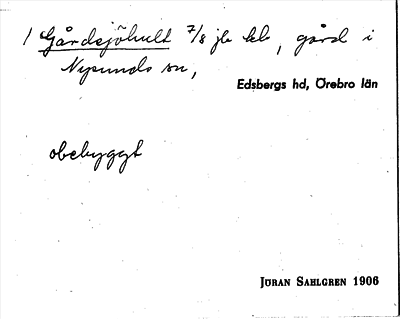 1 Gårdsjöhult 7/8 jb kb, gård i
Nysunds sn,
Edsbergs hd, Örebro län
obebyggt
JÖRAN SAHLGREN 1906